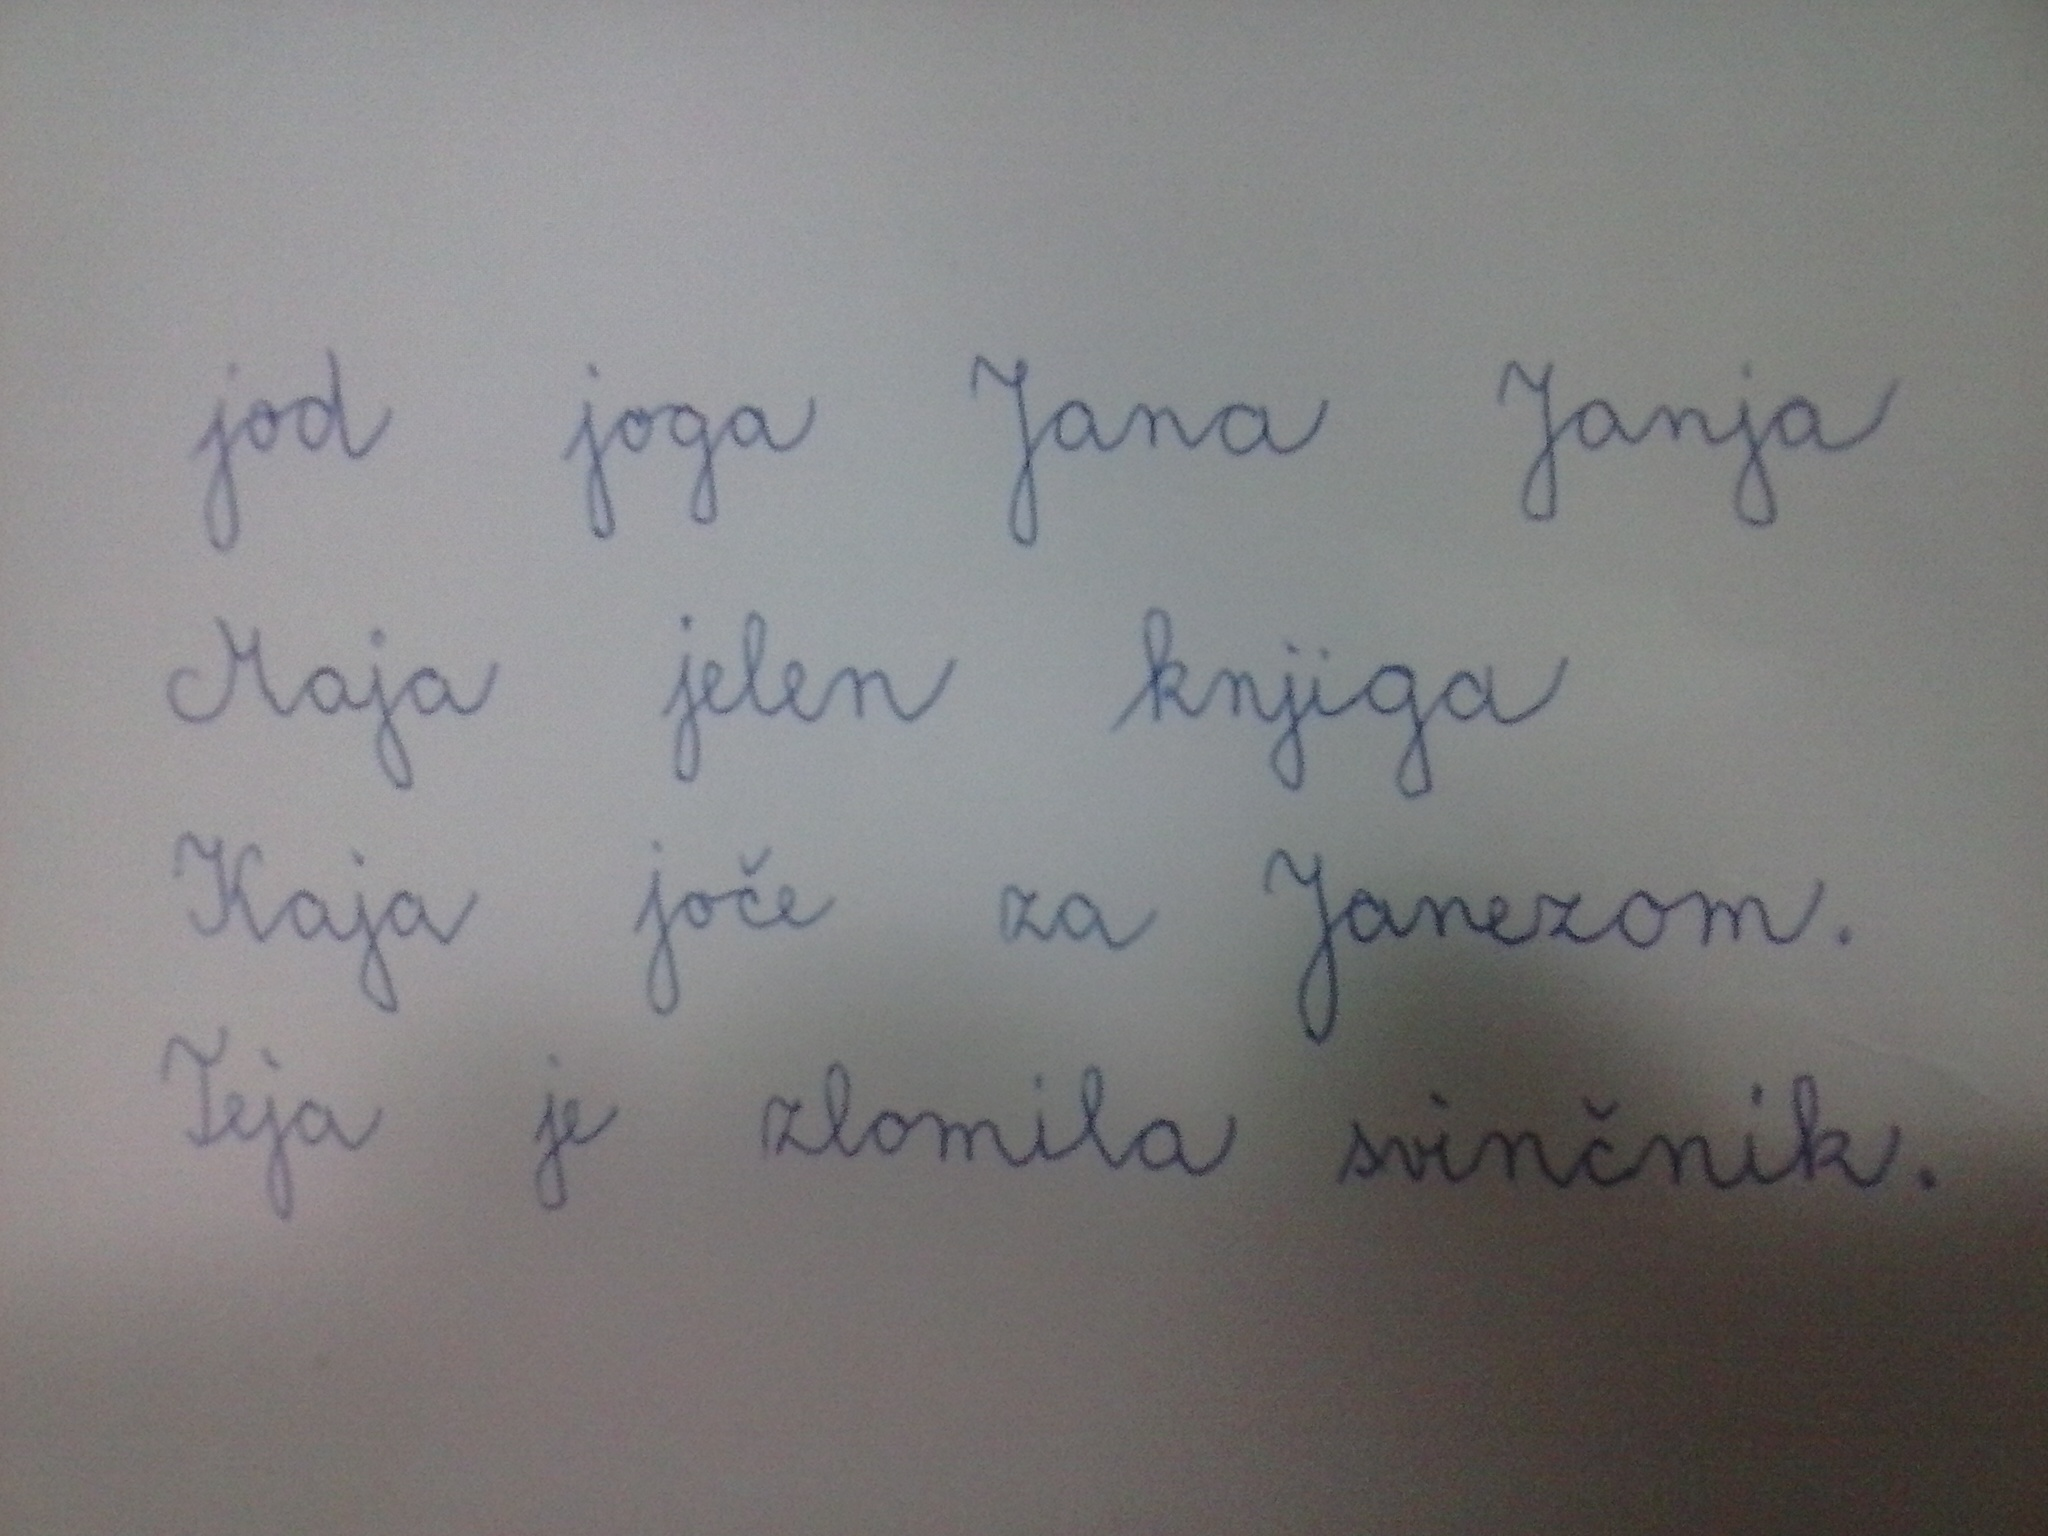 jod joga Jana Janja
Maja jelen knjiga
Kaja joče za Janezom.
Teja je zlomila svinčnik.